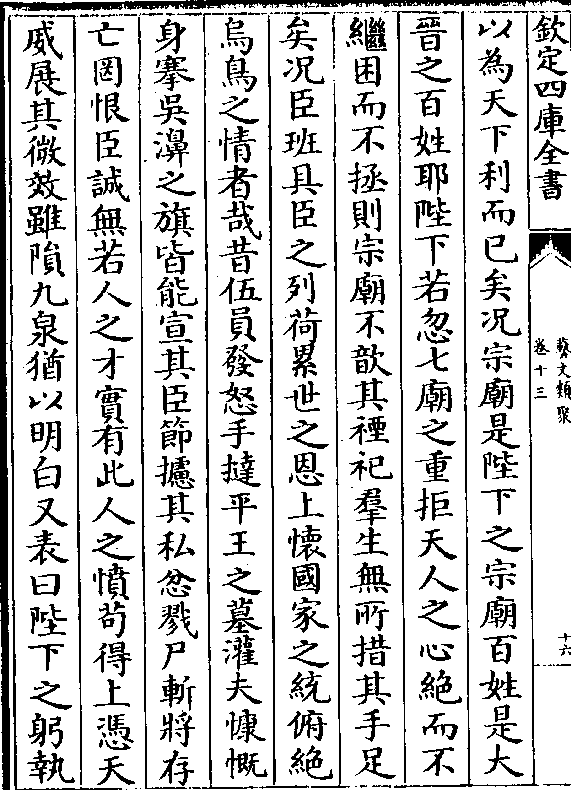 欽定四庫全書
藝文類聚
卷十三
十六
以為天下利而已矣况宗廟是陛下之宗廟百姓是大
晉之百姓耶陛下若忽七廟之重拒天人之心絶而不
繼困而不拯則宗廟不歆其禋祀羣生無所措其手足
矣况臣班具臣之列荷累世之恩上懷國家之統俯絶
烏鳥之情者哉昔伍員發怒手撻平王之墓灌夫慷慨
身搴吳濞之旗皆能宣其臣節攄其私忿戮尸斬將存
亡罔恨臣誠無若人之才實有此人之憤苟得上憑天
威展其微效雖隕九泉猶以明白又表曰陛下之躬執